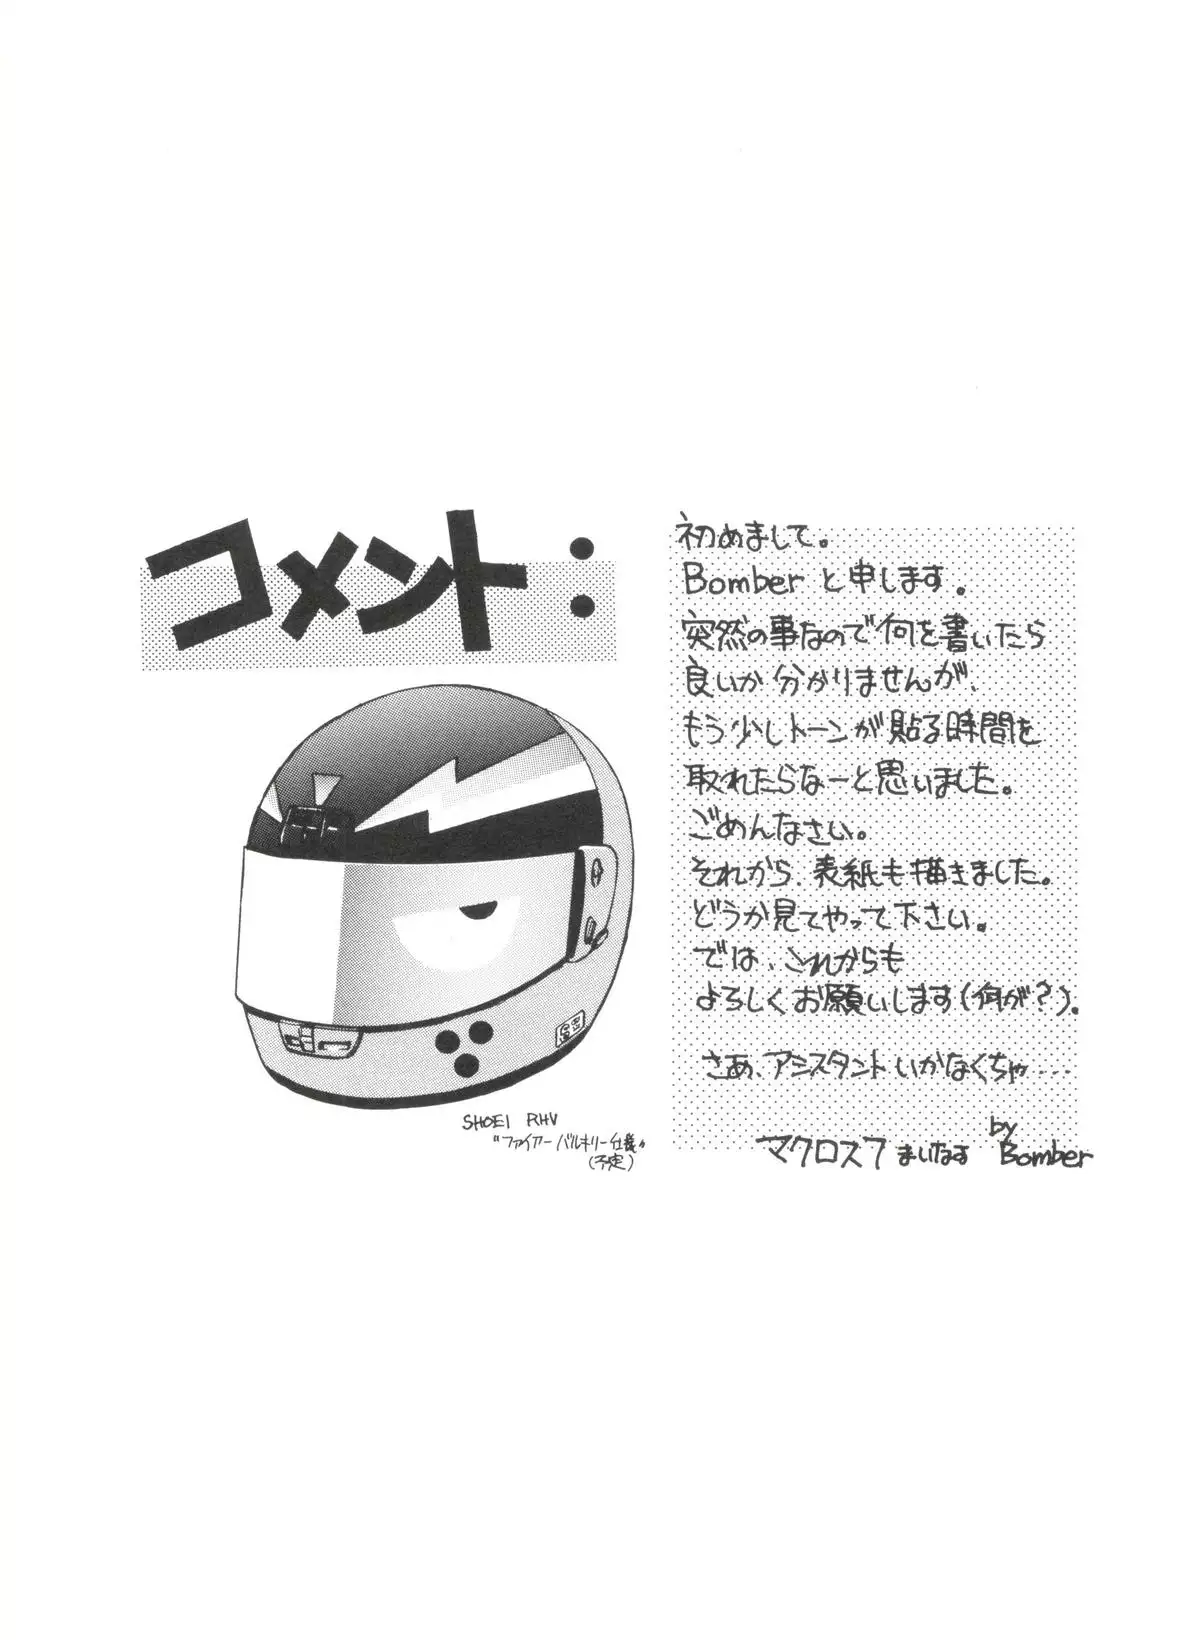 コメント:
初めまして。
Bomber と申します。
突然の事なので何を書いたら
良いか分かりませんが、
もう少しトーンが貼る時間を
取れたらなーと思いました。
ごめんなさい。
それから、表紙も描きました。
どうか見てやって下さい。
では、これからも
よろしくお願いします(何が?)。
さあ、アシスタントいかなくちゃ…
by
マクロス7まいなす Bomber
SHOEI RHV
"ファイアーバルキリー仕様"
(予定)